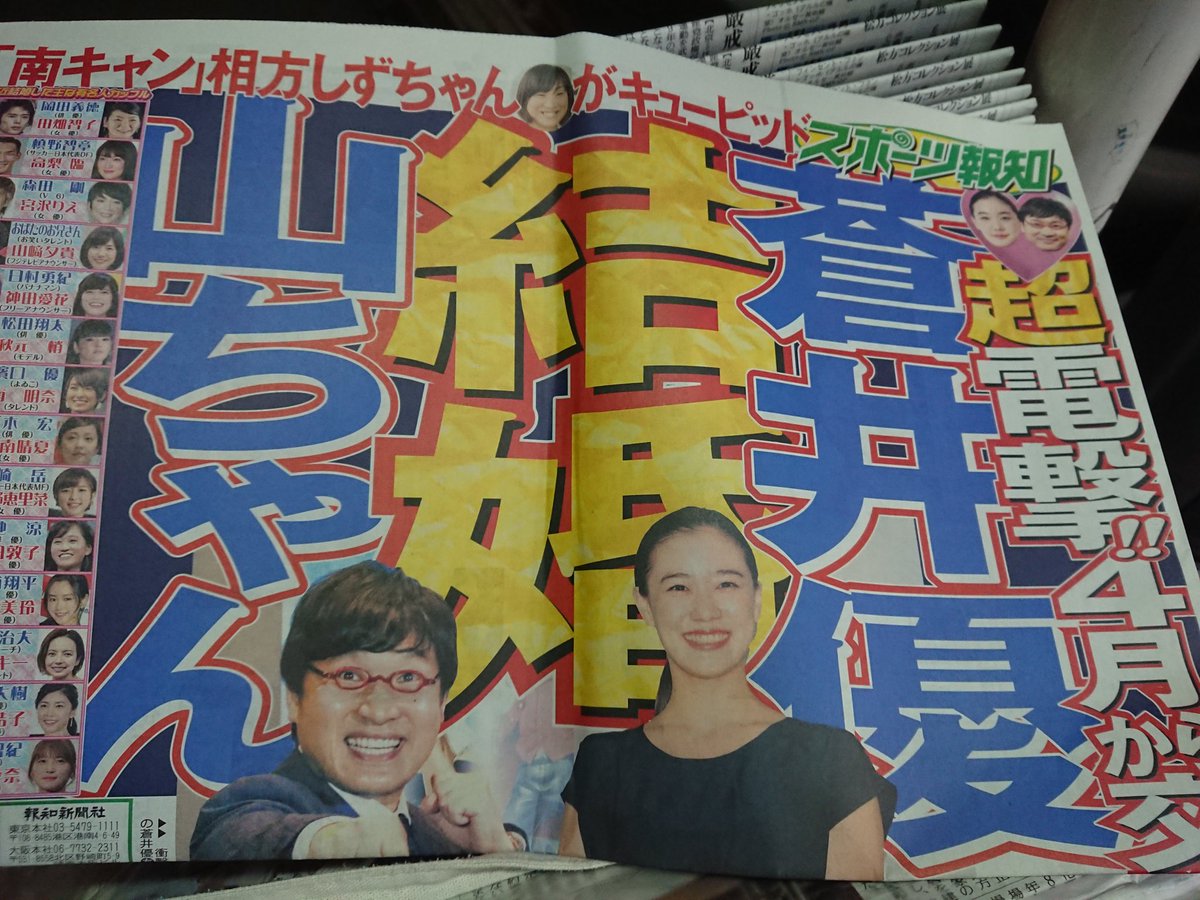 「南キャン」相方しずちゃんがキューピッド
スポーツ報知
超電撃!!4月から
蒼井優
結婚
山ちゃん
近結婚した主な有名人カップル
岡田義徳
(俳優)
田畑智子
(女優)
槙野智章
(サッカー日本代表DF)
高梨臨
(女優)
森田剛
(V6)
宮沢りえ
(女優)
おばたのお兄さん
(お笑いタレント)
山﨑夕貴
(フジテレビアナウンサー)
日村勇紀
(バナナマン)
神田愛花
(フリーアナウンサー)
松田翔太
(俳優)
秋元梢
(モデル)
濱口優
(よゐこ)
明奈
(タレント)
木宏
(俳優)
南晴夏
(女優)
崎岳
日本代表MF)
恵里菜
優)
涼
優)
敦子
優)
翔平
優)
美玲
優)
治大
ーチ)
キー
ント)
大樹
優)
結子
優)
紀
奈
報知新聞社
東京本社03-5479-1111
〒108-8485港区港南4-6-49
大阪本社06-7732-2311
〒531-8558北区野崎町5-9
▶▶衝撃
の蒼井優
厳戒
松方コレクション展
松方コレクション展
松方コレクション展
松方コレクション展